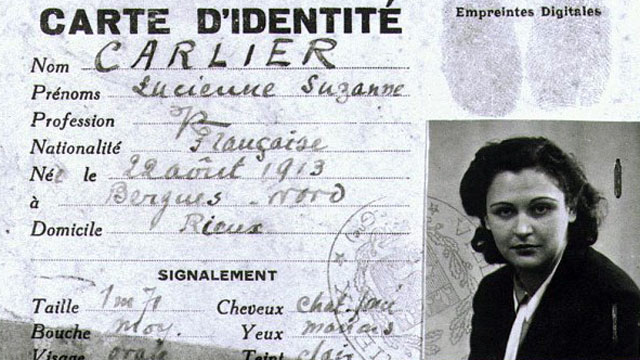 CARTE D'IDENTITÉ
Empreintes Digitales
Nom CARLIER
Prénoms Lucienne Suzanne
Profession
Nationalité Française
Née le 22 août 1913
à Bergues - Nord
Domicile Rieux
SIGNALEMENT
Taille 1m70 Cheveux chat. foncé
Bouche moy. Yeux marrons
Visage ovale Teint clair